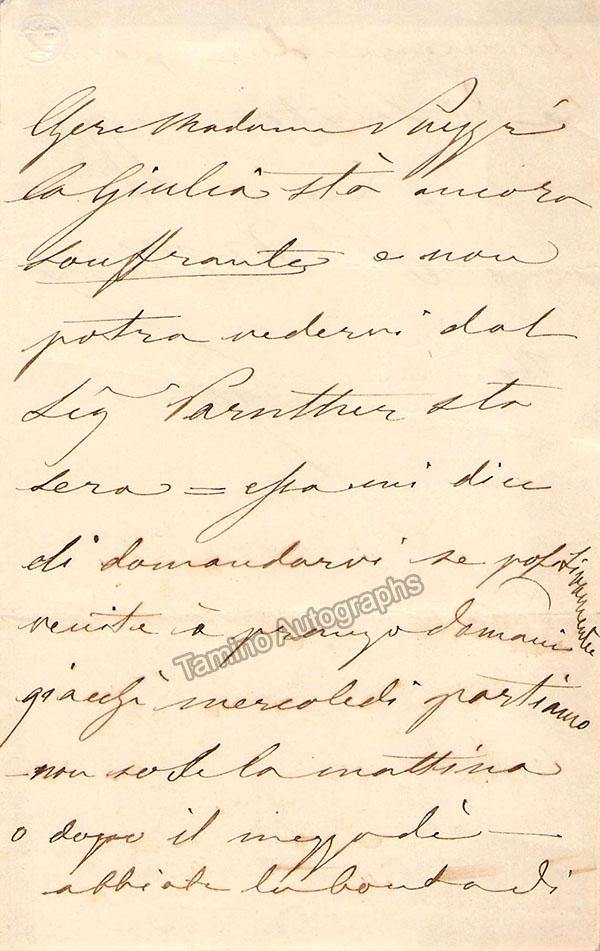 Chere Madame Puzzi
la Giulia stà ancora
souffrante e non
potra vedervi dal
Sig Parnther sta
sera = essa mi dice
di domandarvi se
positivamente
venite à pranzo domani
giacchè mercoledi partiamo
non so se la mattina
o dopo il mezzodì —
abbiate la bonta di
Tamino Autographs